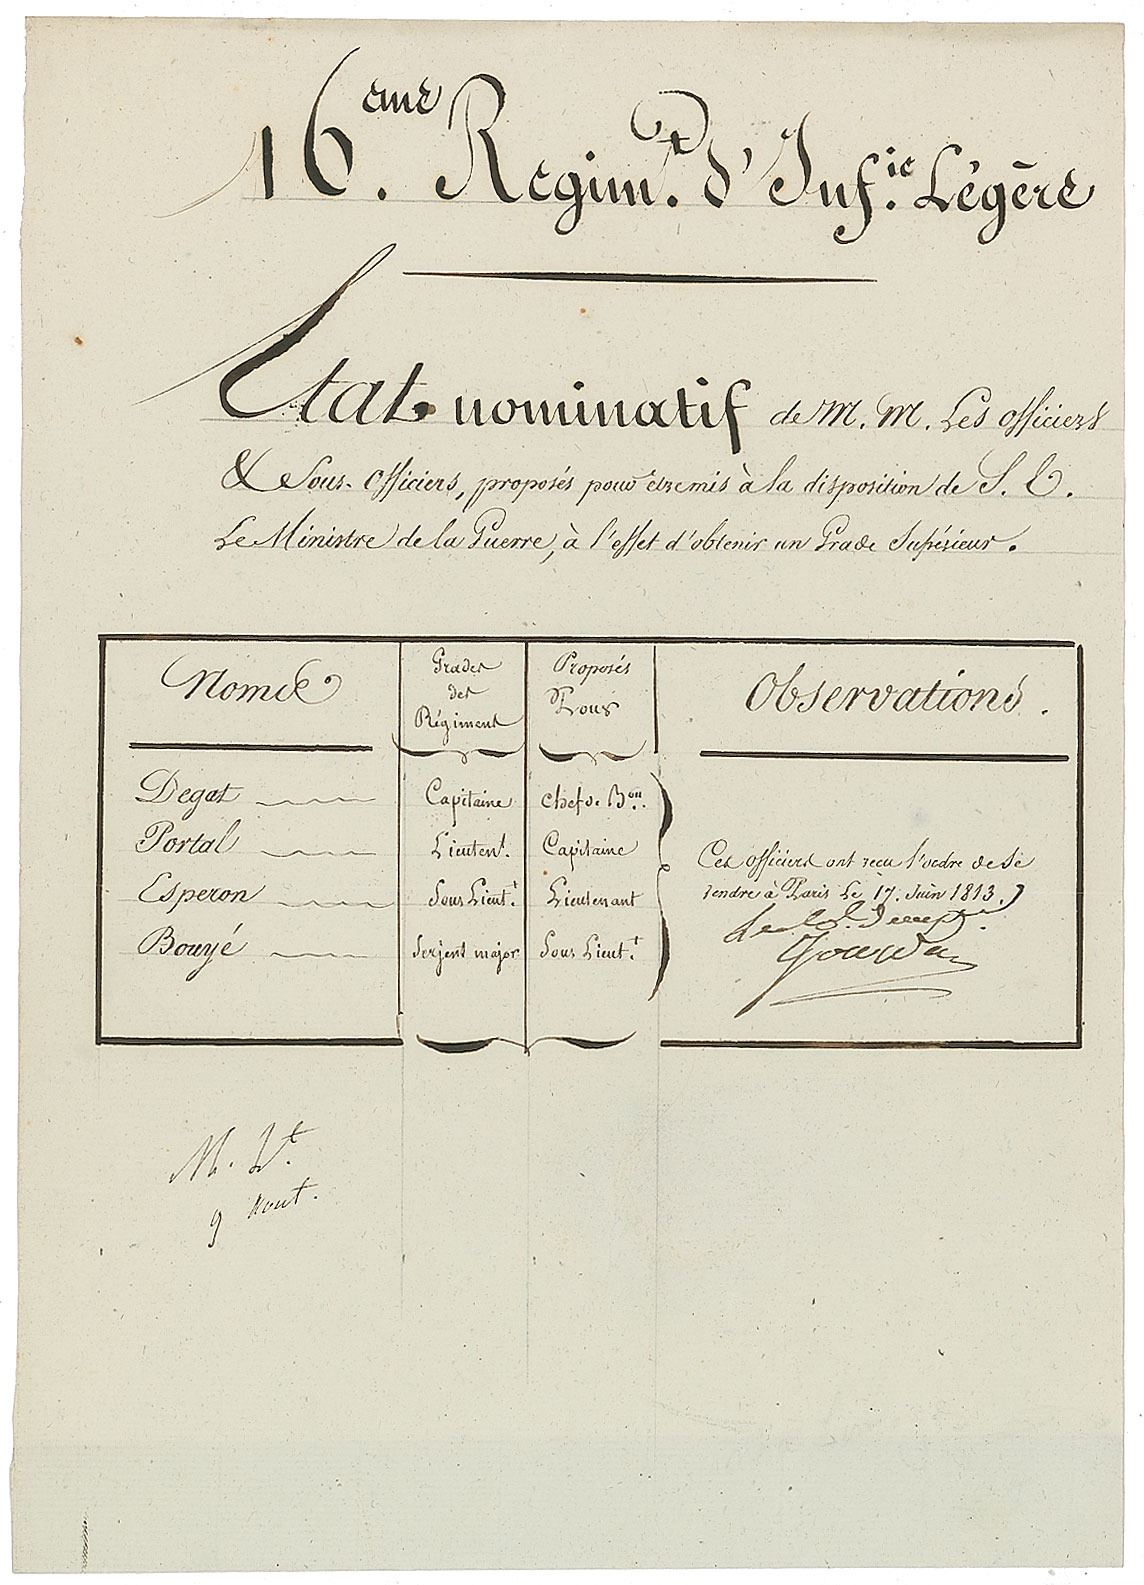 16.eme Regim.t d'Inf.ie Légère
Etat nominatif de M. M. Les officiers
& Sous-Officiers, proposés pour être mis à la disposition de S. E.
Le Ministre de la Guerre, à l'effet d'obtenir un Grade Supérieur.
Noms
Grades
des
Régiment
Proposés
Pour
Observations.
Degat Capitaine chef de B.on
Portal Lieuten.t Capitaine
Esperon Sous Lieut.t Lieutenant
Bouyé Serjent major Sous Lieut.t
Ces officiers ont reçu l'ordre de se
rendre à Paris Le 17. Juin 1813.
Le
M.
9 Aout.